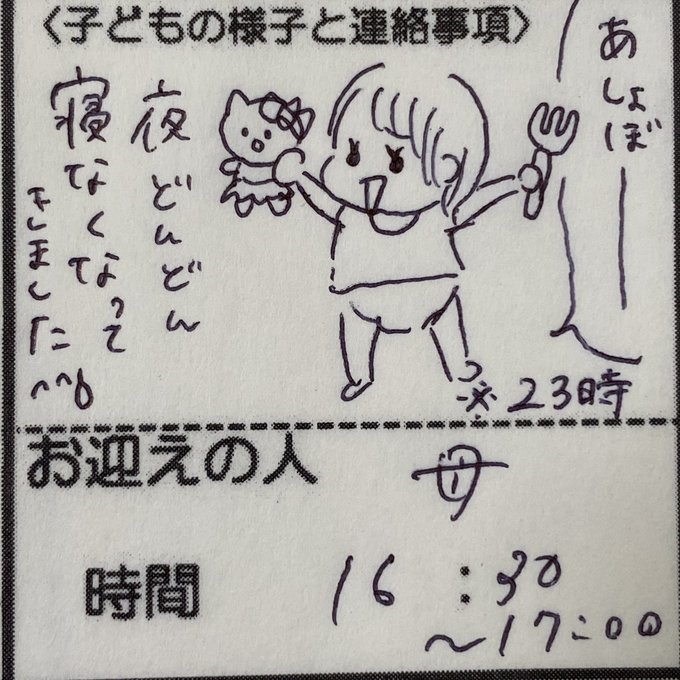 〈子どもの様子と連絡事項〉
あしょぼ――
夜どんどん
寝なくなって
きました^^;
※23時
お迎えの人 母
時間 16:30
～17:00